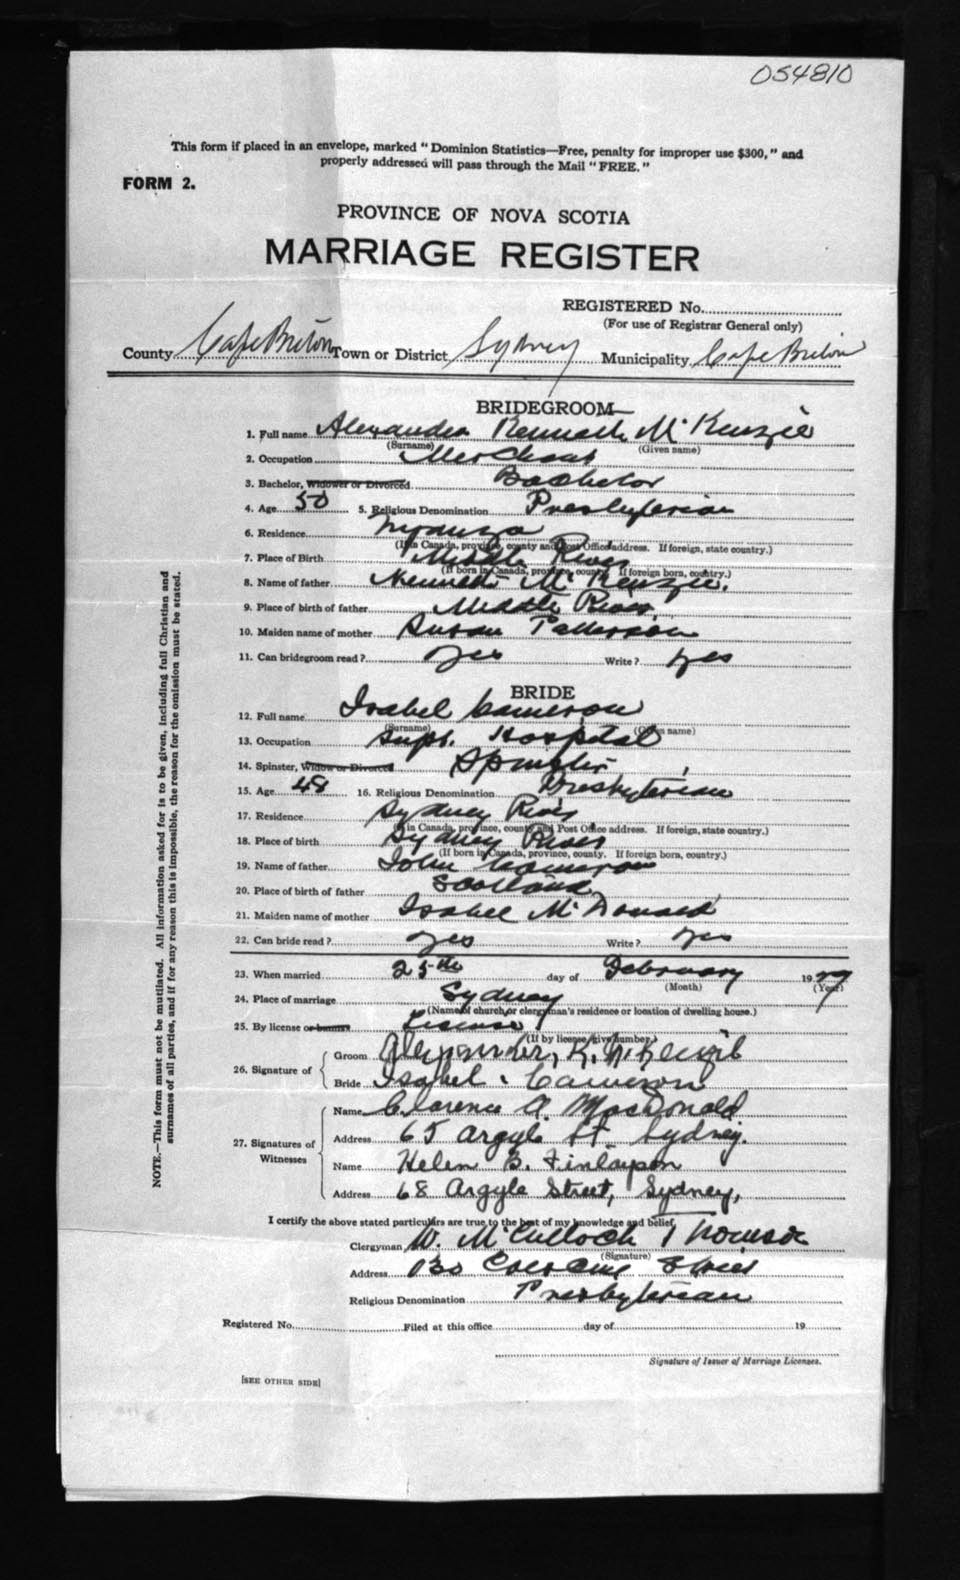 054810
This form if placed in an envelope, marked "Dominion Statistics—Free, penalty for improper use $300," and
properly addressed will pass through the Mail "FREE."
FORM 2.
PROVINCE OF NOVA SCOTIA
MARRIAGE REGISTER
REGISTERED No.
(For use of Registrar General only)
County Cape Breton Town or District Sydney Municipality Cape Breton
BRIDEGROOM
1. Full name Alexander Kenneth McKenzie
(Surname) (Given name)
2. Occupation Merchant
3. Bachelor, Widower or Divorced Bachelor
4. Age 50 5. Religious Denomination Presbyterian
6. Residence Nyanza
(If in Canada, province, county and Post Office address. If foreign, state country.)
7. Place of Birth Middle River
(If born in Canada, province, county. If foreign born, country.)
8. Name of father Kenneth McKenzie.
9. Place of birth of father Middle River
10. Maiden name of mother Susan Patterson
11. Can bridegroom read? Yes Write? Yes
BRIDE
12. Full name Isabel Cameron
(Surname) (Given name)
13. Occupation Supt. Hospital
14. Spinster, Widow or Divorced Spinster
15. Age 48 16. Religious Denomination Presbyterian
17. Residence Sydney River
(If in Canada, province, county and Post Office address. If foreign, state country.)
18. Place of birth Sydney River
(If born in Canada, province, county. If foreign born, country.)
19. Name of father John Cameron
20. Place of birth of father Scotland
21. Maiden name of mother Isabel McDonald
22. Can bride read? Yes Write? Yes
23. When married 25th day of February 19
(Month) (Year)
24. Place of marriage Sydney
(Name of church or clergyman's residence or location of dwelling house.)
25. By license or banns License
(If by license give number.)
26. Signature of Groom Alexander, K. McKenzie
Bride Isabel Cameron
27. Signatures of Witnesses Name Clarence A. MacDonald
Address 65 Argyle St. Sydney.
Name Helen B. Finlayson
Address 68 Argyle Street, Sydney,
I certify the above stated particulars are true to the best of my knowledge and belief.
Clergyman W. McCulloch Thomson
(Signature)
Address Street
Religious Denomination Presbyterian
Registered No. Filed at this office day of 19
Signature of Issuer of Marriage Licenses.
[SEE OTHER SIDE]
NOTE.—This form must not be mutilated. All information asked for is to be given, including full Christian and
surnames of all parties, and if for any reason this is impossible, the reason for the omission must be stated.